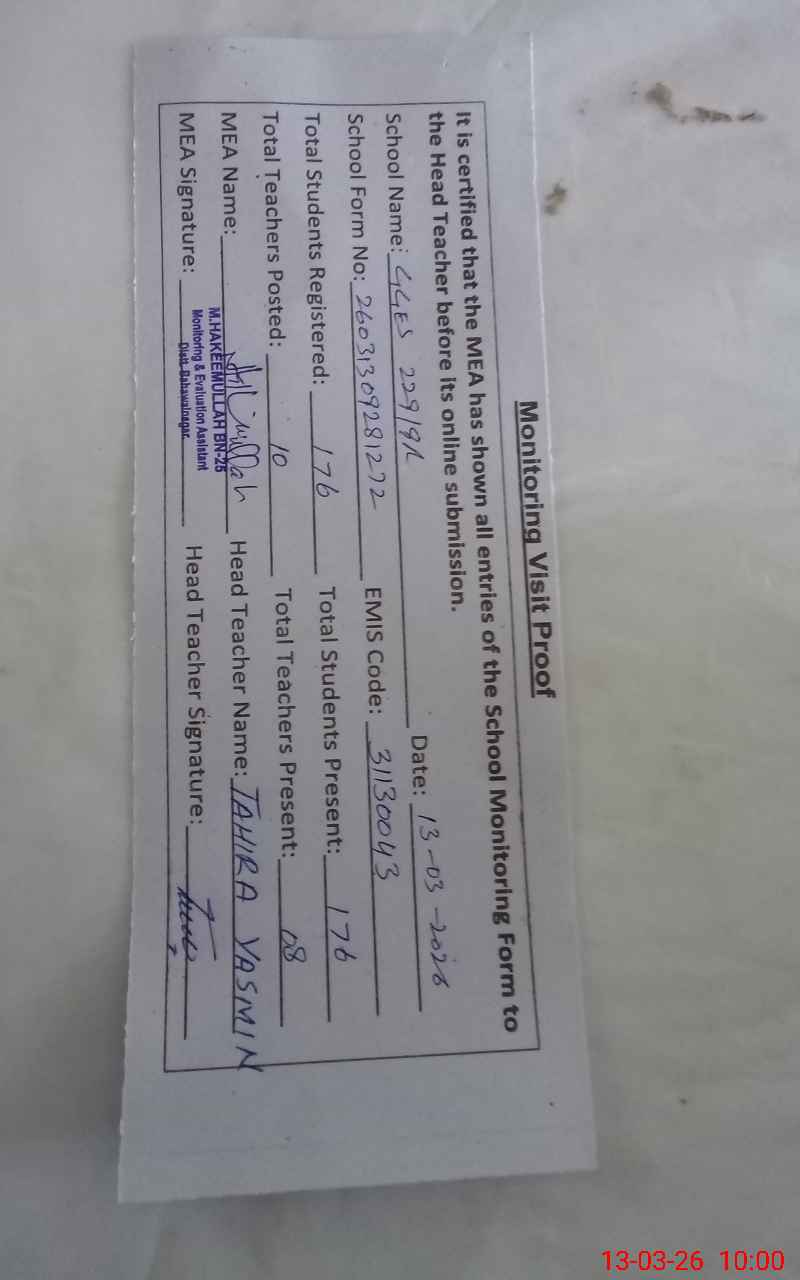 Monitoring Visit Proof
It is certified that the MEA has shown all entries of the School Monitoring Form to
the Head Teacher before its online submission.
School Name: GGES 229/9R Date: 13-03-2026
School Form No: 26031309281272 EMIS Code: 31130043
Total Students Registered: 176 Total Students Present: 176
Total Teachers Posted: 10 Total Teachers Present: 08
MEA Name: Head Teacher Name: TAHIRA YASMIN
M.HAKEEMULLAH BN-25
Monitoring & Evaluation Assistant
Distt. Bahawalnagar
MEA Signature: Head Teacher Signature:
13-03-26 10:00